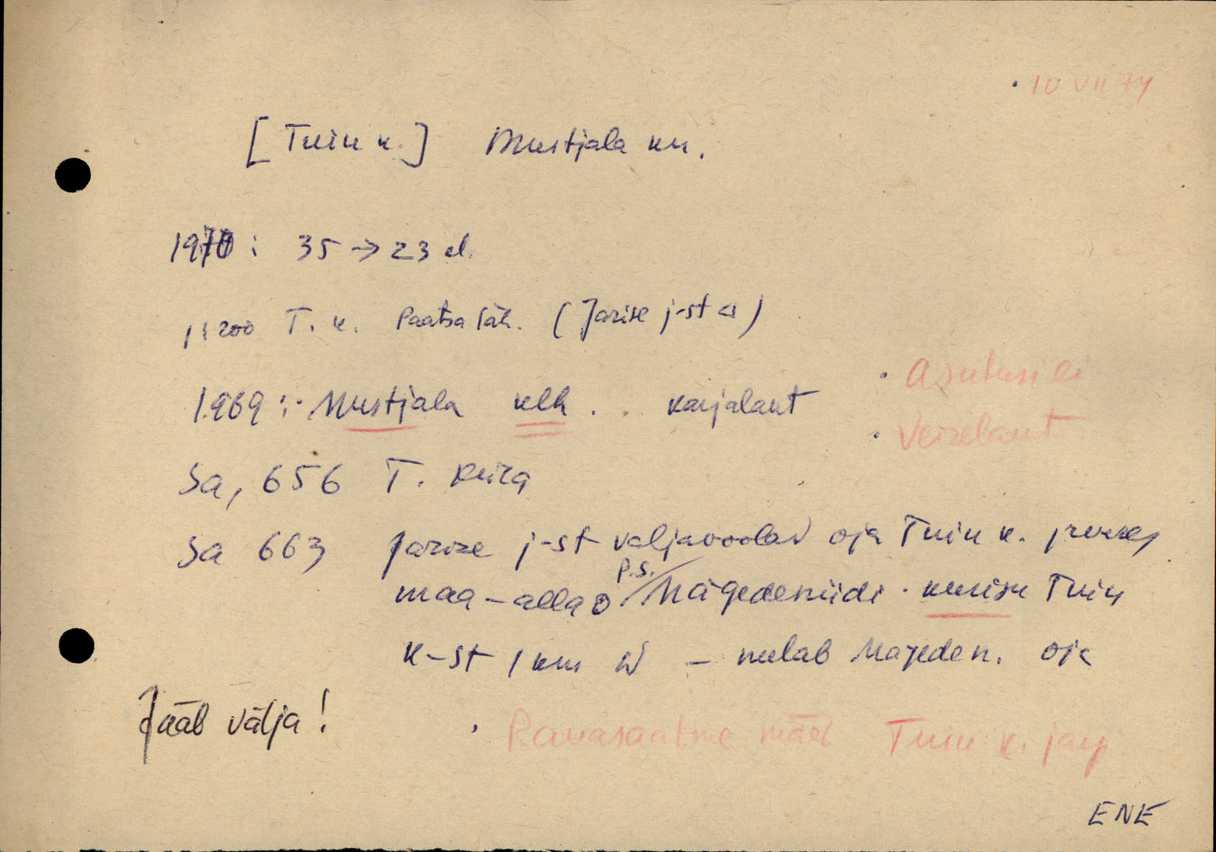 10 VII 74
[Tuiu k.] Mustjala kn.
1970: 35 → 23 el.
T. k. Paatsa läh. (Jarise j-st
1969: Mustjala klh. karjalaut
Asutusi ei
Veiselaut
Sa, 656 T.
Sa 663 Jarise j-st väljavoolav oja Tuiu k.
p.s.
maa-alla Mägedeniidi kurisu Tuiu
k-st 1 km W – neelab Mägeden. oja
Jääb välja!
Rauasaatme mäed Tuiu k.
ENE